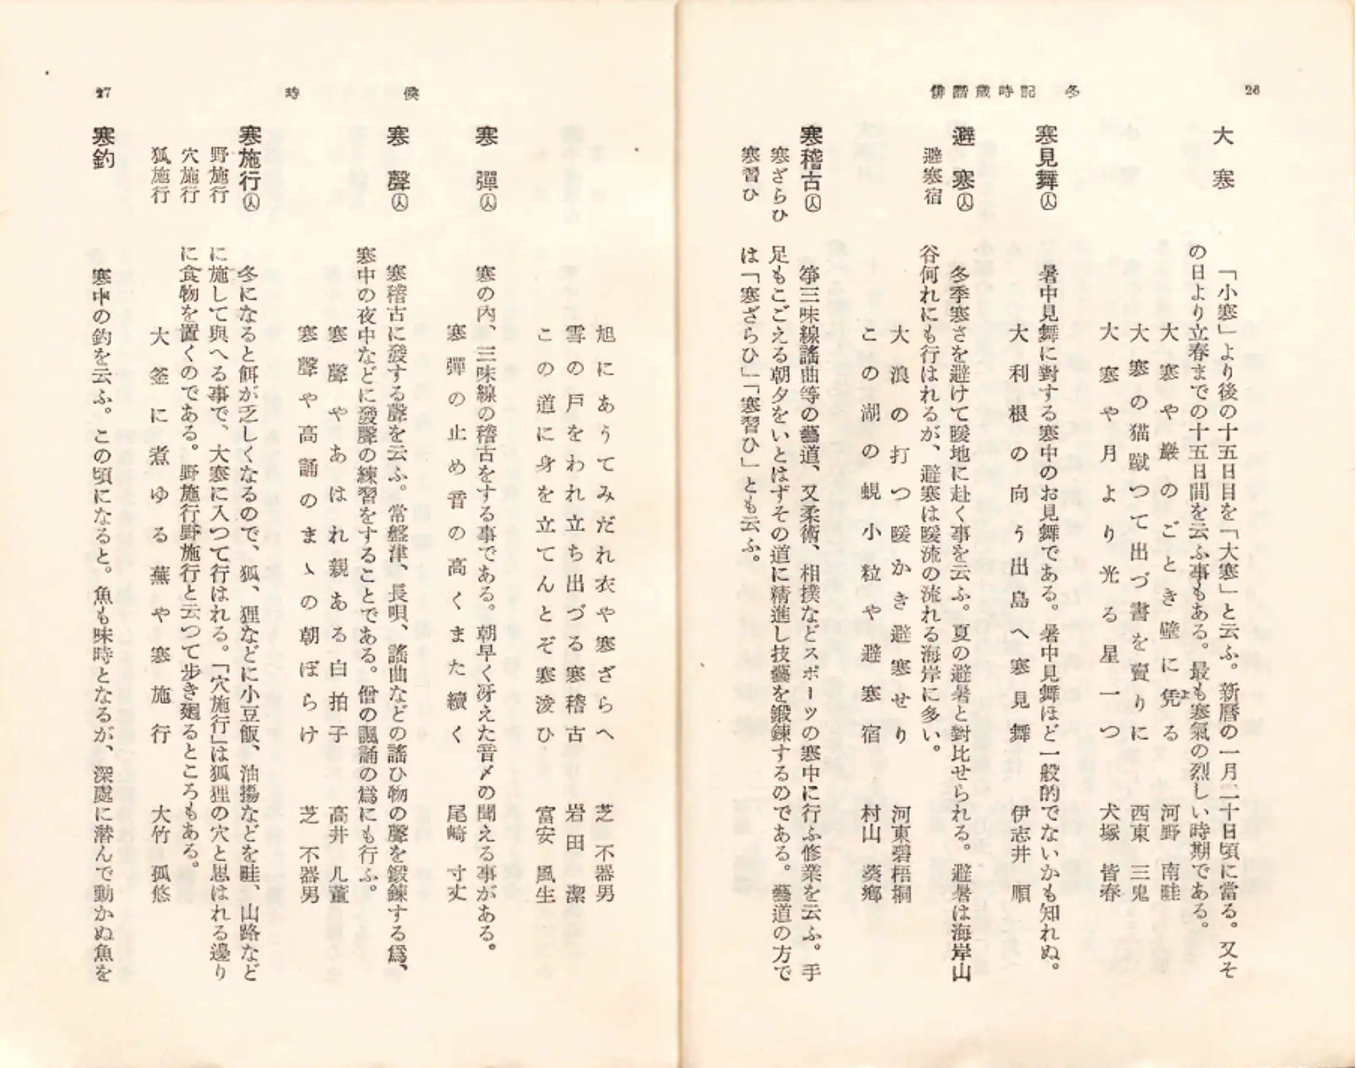 俳諧歳時記 冬
26
大寒
「小寒」より後の十五日目を「大寒」と云ふ。新暦の一月二十日頃に當る。又そ
の日より立春までの十五日間を云ふ事もある。最も寒氣の烈しい時期である。
大寒や巌のごとき壁に凭る 河野南畦
よ
大寒の猫蹴つて出づ書を賣りに 西東三鬼
大寒や月より光る星一つ 犬塚皆春
寒見舞㊅
暑中見舞に對する寒中のお見舞である。暑中見舞ほど一般的でないかも知れぬ。
大利根の向う出島へ寒見舞 伊志井順
避寒㊅
避寒宿
冬季寒さを避けて暖地に赴く事を云ふ。夏の避暑と對比せられる。避暑は海岸山
谷何れにも行はれるが、避寒は暖流の流れる海岸に多い。
大浪の打つ暖かき避寒せり 河東碧梧桐
この湖の蜆小粒や避寒宿 村山葵郷
寒稽古㊅
寒ざらひ
寒習ひ
箏三味線謠曲等の藝道、又柔術、相撲などスポーツの寒中に行ふ修業を云ふ。手
足もこごえる朝夕をいとはずその道に精進し技藝を鍛錬するのである。藝道の方で
は「寒ざらひ」「寒習ひ」とも云ふ。
時候
27
旭にあうてみだれ衣や寒ざらへ 芝不器男
雪の戸をわれ立ち出づる寒稽古 岩田潔
この道に身を立てんとぞ寒浚ひ 富安風生
寒彈㊅
寒の内、三味線の稽古をする事である。朝早く冴えた音〆の聞える事がある。
寒彈の止め音の高くまた續く 尾崎寸丈
寒聲㊅
寒稽古に發する聲を云ふ。常盤津、長唄、謠曲などの謠ひ物の聲を鍛錬する爲、
寒中の夜中などに發聲の練習をすることである。僧の諷誦の爲にも行ふ。
寒聲やあはれ親ある白拍子 高井几董
寒聲や高誦のまゝの朝ぼらけ 芝不器男
寒施行㊅
野施行
穴施行
狐施行
冬になると餌が乏しくなるので、狐、狸などに小豆飯、油揚などを畦、山路など
に施して與へる事で、大寒に入つて行はれる。「穴施行」は狐狸の穴と思はれる邊り
に食物を置くのである。野施行野施行と云つて歩き廻るところもある。
大釜に煮ゆる蕪や寒施行 大竹孤悠
寒釣
寒中の釣を云ふ。この頃になると。魚も味時となるが、深處に潜んで動かぬ魚を